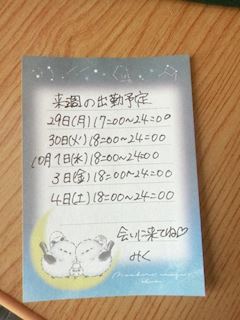 来週の出勤予定
29日(月)17=00~24=00
30日(火)18=00~24=00
10月1日(水)18=00~24=00
3日(金)18=00~24=00
4日(土)18=00~24=00
会いに来てね♡
みく